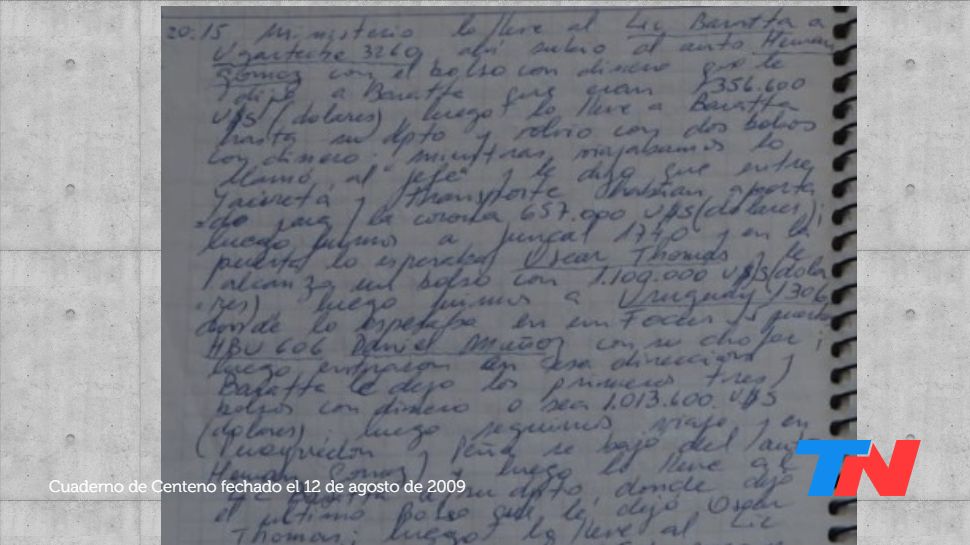 20:15 Ministerio lo lleve al Lic Baratta a
Ugarteche 3260, ahi subio al auto Hernan
Gomez con el bolso con dinero que le
dijo a Baratta que eran 356.600
U$S (dolares) luego lo lleve a Baratta
hasta su dpto y volvio con dos bolsos
con dinero; mientras viajabamos lo
llamó al "jefe" y le dijo que entre
Yacireta y transporte
para la corona 657.000 U$S (dolares);
luego fuimos a Juncal 1740 y en la
puerta lo esperaba Oscar Thomas y le
alcanza un bolso con 1.100.000 U$S (dola
res) luego fuimos a Uruguay 1306
donde lo esperaba en un Focus
HBU 606 Daniel Muñoz con su chofer;
luego entraron en esa direccion y
Baratta le dejo los primeros tres
bolsos con dinero o sea 1.013.600 U$S
(dolares); luego seguimos viaje y en
Pueyrredon y Peña se bajo del auto
Hernan Gomez y luego lo lleve al
su dpto, donde dejo
el ultimo bolso que le dejó Oscar
Thomas; luego lo lleve al Lic
Cuaderno de Centeno fechado el 12 de agosto de 2009
TN